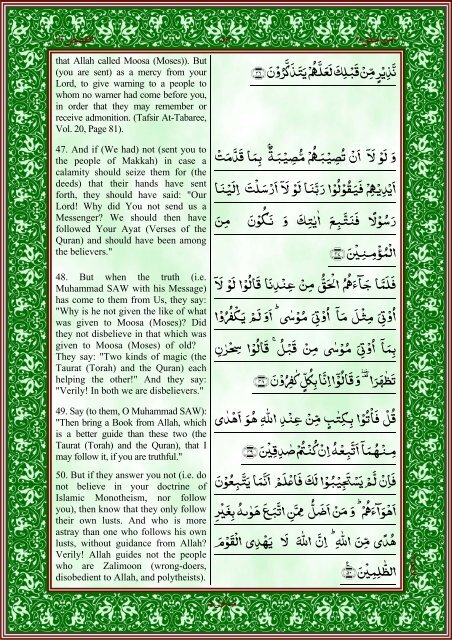 that Allah called Moosa (Moses)). But
(you are sent) as a mercy from your
Lord, to give warning to a people to
whom no warner had come before you,
in order that they may remember or
receive admonition. (Tafsir At-Tabaree,
Vol. 20, Page 81).
47. And if (We had) not (sent you to
the people of Makkah) in case a
calamity should seize them for (the
deeds) that their hands have sent
forth, they should have said: "Our
Lord! Why did You not send us a
Messenger? We should then have
followed Your Ayat (Verses of the
Quran) and should have been among
the believers."
48. But when the truth (i.e.
Muhammad SAW with his Message)
has come to them from Us, they say:
"Why is he not given the like of what
was given to Moosa (Moses)? Did
they not disbelieve in that which was
given to Moosa (Moses) of old?
They say: "Two kinds of magic (the
Taurat (Torah) and the Quran) each
helping the other!" And they say:
"Verily! In both we are disbelievers."
49. Say (to them, O Muhammad SAW):
"Then bring a Book from Allah, which
is a better guide than these two (the
Taurat (Torah) and the Quran), that I
may follow it, if you are truthful."
50. But if they answer you not (i.e. do
not believe in your doctrine of
Islamic Monotheism, nor follow
you), then know that they only follow
their own lusts. And who is more
astray than one who follows his own
lusts, without guidance from Allah?
Verily! Allah guides not the people
who are Zalimoon (wrong-doers,
disobedient to Allah, and polytheists).
نَّذِيْرٍ مِّنْ قَبْلِكَ لَعَلَّهُمْ يَتَذَكَّرُوْنَ
وَ لَوْ لَاۤ اَنْ تُصِيْبَهُمْ مُّصِيْبَةٌۢ بِمَا قَدَّمَتْ
اَيْدِيْهِمْ فَيَقُوْلُوْا رَبَّنَا لَوْ لَاۤ اَرْسَلْتَ اِلَيْنَا
رَسُوْلًا فَنَتَّبِعَ اٰيٰتِكَ وَ نَكُوْنَ مِنَ
الْمُؤْمِنِيْنَ
فَلَمَّا جَآءَهُمُ الْحَقُّ مِنْ عِنْدِنَا قَالُوْا لَوْ لَاۤ
اُوْتِيَ مِثْلَ مَاۤ اُوْتِيَ مُوْسٰى ؕ اَوَ لَمْ يَكْفُرُوْا
بِمَاۤ اُوْتِيَ مُوْسٰى مِنْ قَبْلُ ۚ قَالُوْا سِحْرٰنِ
تَظٰهَرَا ۫ وَ قَالُوْۤا اِنَّا بِكُلٍّ كٰفِرُوْنَ
قُلْ فَاْتُوْا بِكِتٰبٍ مِّنْ عِنْدِ اللّٰهِ هُوَ اَهْدٰى
مِنْهُمَاۤ اَتَّبِعْهُ اِنْ كُنْتُمْ صٰدِقِيْنَ
فَاِنْ لَّمْ يَسْتَجِيْبُوْا لَكَ فَاعْلَمْ اَنَّمَا يَتَّبِعُوْنَ
اَهْوَآءَهُمْ ؕ وَ مَنْ اَضَلُّ مِمَّنِ اتَّبَعَ هَوٰىهُ بِغَيْرِ
هُدًى مِّنَ اللّٰهِ ؕ اِنَّ اللّٰهَ لَا يَهْدِى الْقَوْمَ
الظّٰلِمِيْنَ